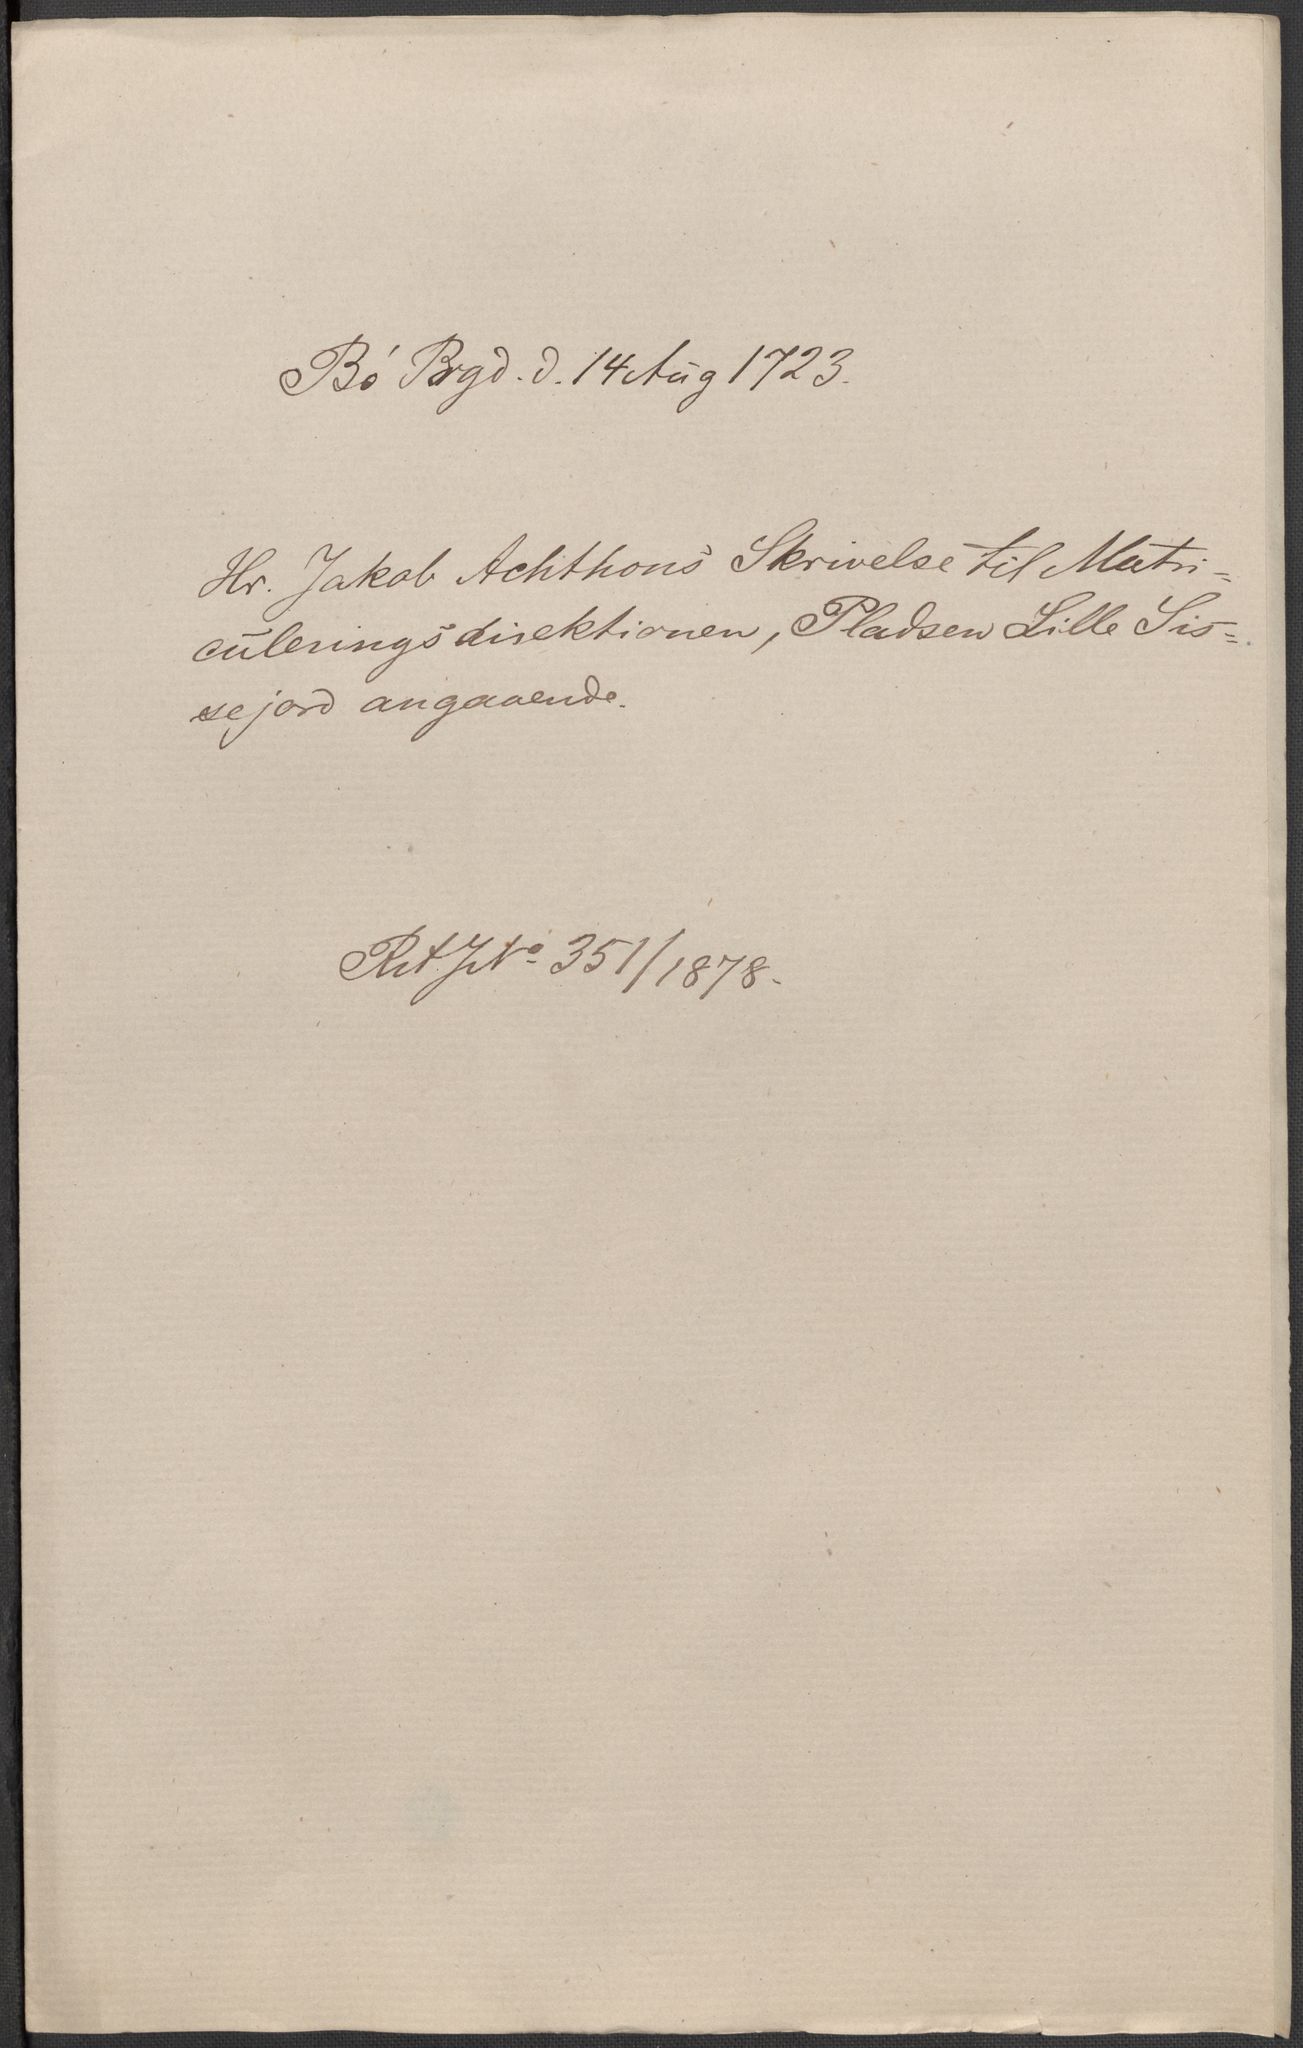 Bó Prgd. d. 14 Aug 1723.
Hr. Jakob Achthons Skrivelse til Matri=
culeringsdirektionen, Pladsen Lille Sis=
sejord angaaende.
RA. JNo 351/1878.